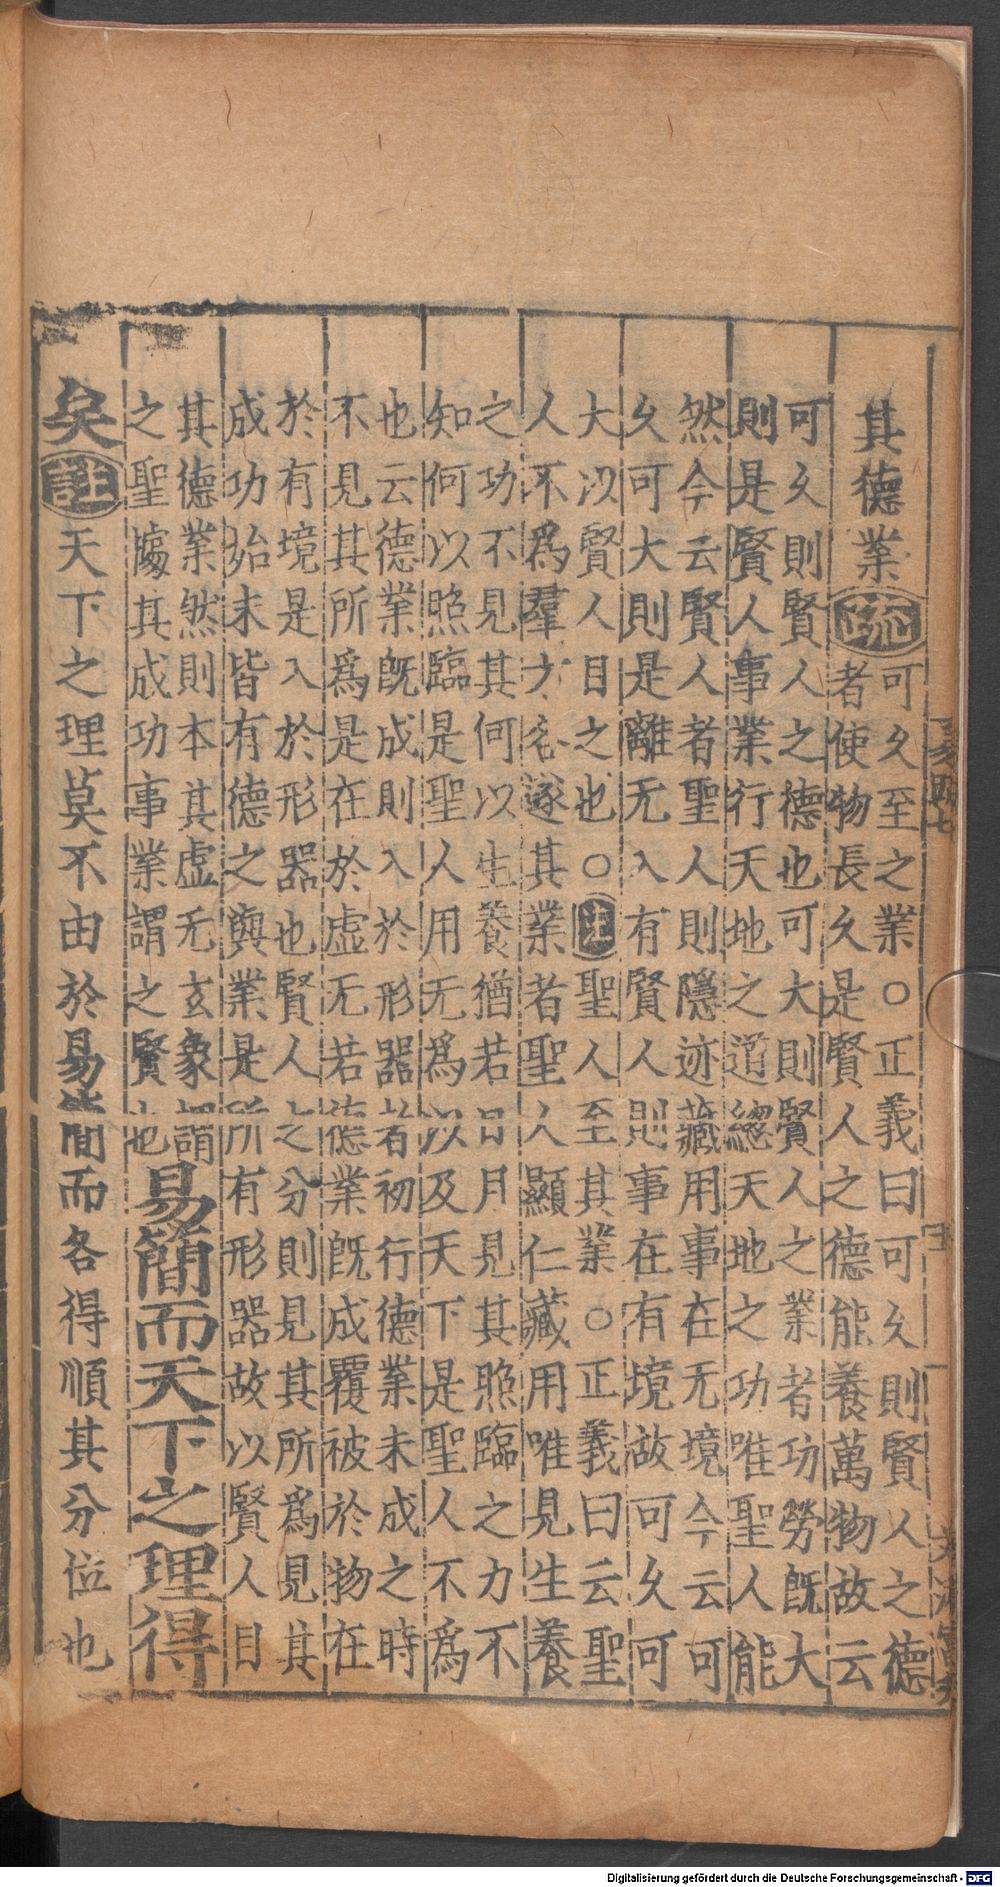 其德業疏可久至之業○正義曰可久則賢人之德
者使物長久是賢人之德能養萬物故云
可久則賢人之德也可大則賢人之業者功勞旣大
則是賢人事業行天地之道總天地之功唯聖人能
然今云賢人者聖人則隱迹藏用事在无境今云可
久可大則是離无入有賢人則事在有境故可久可
大以賢人目之也○注聖人至其業○正義曰云聖
人不爲羣方各遂其業者聖人顯仁藏用唯見生養
之功不見其何以生養猶若日月見其照臨之力不
知何以照臨是聖人用无爲以及天下是聖人不爲
也云德業旣成則入於形器者初行德業未成之時
不見其所爲是在於虛无若德業旣成覆被於物在
於有境是入於形器也賢人之分則見其所爲見其
成功始末皆有德之與業是所有形器故以賢人目
其德業然則本其虛无玄象謂
之聖據其成功事業謂之賢也
易簡而天下之理得
矣註天下之理莫不由於易簡而各得順其分位也
Digitalisierung gefördert durch die Deutsche Forschungsgemeinschaft - DFG